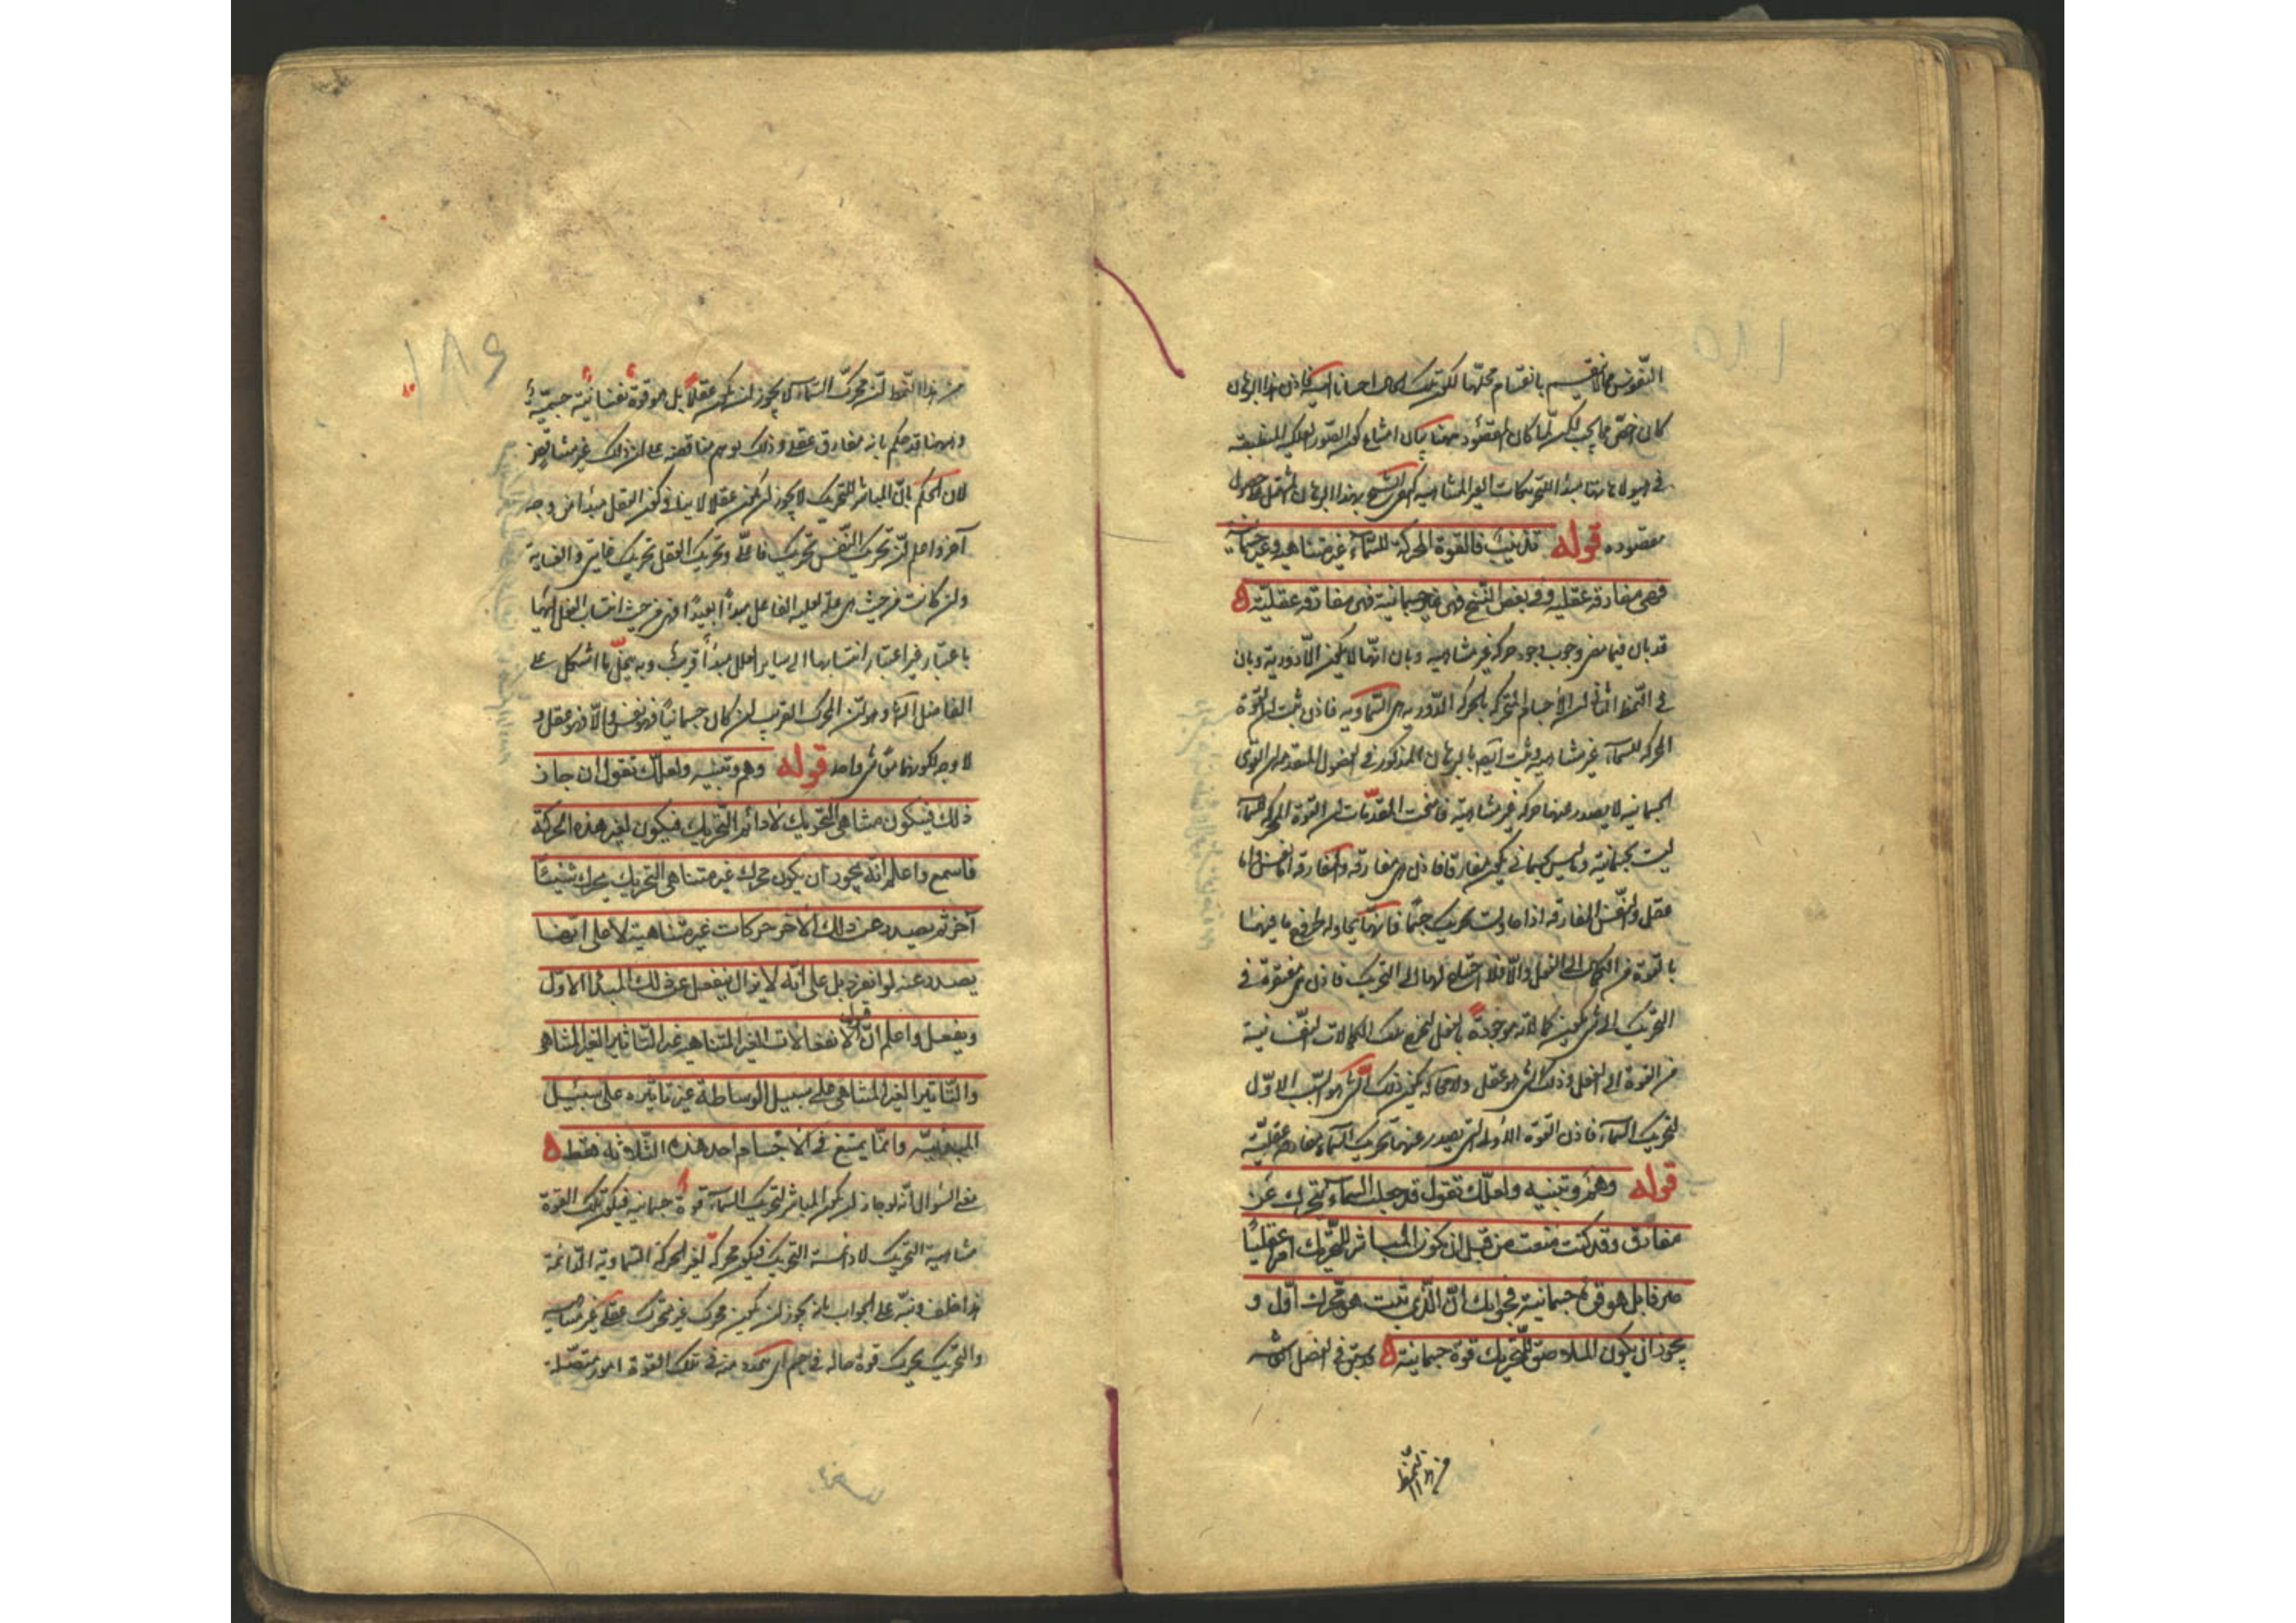 النفوس مما لا ينقسم بانقسام محلها لكون تلك اجسامها فاذن هذا البرهان
كان اخص مما يجب لكن لما كان المقصود ههنا بيان امتناع كون الصور الفلكية المنطبعة
في هيولاها مبدأ للتحريكات الغير المتناهية اكتفى الشيخ بهذا البرهان المشتمل على حصول
مقصوده قوله تذنيب فالقوة المحركة للسماء غير متناهية وغير جسمانية
فهي مفارقة عقلية وفي بعض النسخ فهي غير جسمانية فهي مفارقة عقلية
قد بان فيما مضى وجوب وجود حركة غير متناهية وبان انها لا يكون الا دورية وبان
في النمط الثاني ان الاجسام المتحركة بالحركة الدورية هي السماوية فاذن ثبت ان القوة
المحركة للسماء غير متناهية وثبت ايضا بالبرهان المذكور في الفصول المتقدمة ان القوى
الجسمانية لا يصدر عنها حركة غير متناهية فانتجت المقدمات ان القوة المحركة للسماء
ليست بجسمانية وما ليس بجسماني يكون مفارقا فاذن هي مفارقة والمفارقة اما نفس واما
عقل والنفس المفارقة اذا حاولت تحريك جسم فانها يحاوله لخروج ما فيها
بالقوة من الكمال الى الفعل والا فلا احتياج لها الى التحريك فاذن هي مفتقرة في
التحريك الى شيء يكون كمالاته موجودة بالفعل لتخرج تلك الكمالات النفسانية
من القوة الى الفعل وذلك الشيء هو عقل ولا محالة يكون ذلك الشيء هو السبب الاول
لتحريك السماء فاذن القوة الاولى التي يصدر عنها تحريك السماء مفارقة عقلية
قوله وهم وتنبيه ولعلك تقول قد جعلت السماء يتحرك عن
مفارق وقد كنت منعت من قبل ان يكون المباشر للتحريك امرا عقليا
صرفا بل هو قوة جسمانية فجوابك ان الذي ثبت هو محرك اول و
يجوز ان يكون الملاصق للتحريك قوة جسمانية قد بين في الفصل
من هذا النمط
١٨٦
من هذا النمط ان محرك السماء لا يجوز ان يكون عقلا بل هو قوة نفسانية جسمية
وههنا قد حكم بانه مفارق عقلي وذلك يوهم مناقضة على ان ذلك غير متناقض
لان الحكم بان المباشر للتحريك لا يجوز ان يكون عقلا لا ينافي كون العقل مبدأ من وجه
آخر واعلم ان تحريك النفس تحريك فاعلي وتحريك العقل تحريك غايي والغاية
وان كانت من حيث هي علة لعلية الفاعل مبدأ بعيدا فهي من حيث انتساب الفعل اليها
باعتبار غير اعتبار انتسابها الى ساير العلل مبدأ قريب وبه ينحل ما اشكل على
الفاضل الشارح وهو ان المحرك القريب ان كان جسمانيا فهو نفس والا فهو عقل و
لا وجه لكونهما شيء واحد قوله وهم وتنبيه ولعلك تقول ان جاز
ذلك فيكون متناهي التحريك لا دائم التحريك فيكون لغير هذه الحركة
فاسمع واعلم انه يجوز ان يكون محرك غير متناهي التحريك يحرك شيئا
آخر ثم يصدر عن ذلك الآخر حركات غير متناهية لا على انها
يصدر عنه لو انفرد بل على انه لا يزال ينفعل عن ذلك المبدأ الاول
ويفعل واعلم ان قبول الانفعالات الغير المتناهية غير التأثير الغير المتناهي
والتأثير الغير المتناهي على سبيل الوساطة غير تأثيره على سبيل
المبدئية وانما يمتنع في الاجسام احد هذه الثلاثة فقط
السؤال انه لو جاز ان يكون المباشر لتحريك السماء قوة جسمانية فيكون تلك القوة
متناهية التحريك لا دائمة التحريك فيكون محركة لغير الحركة السماوية الدائمة
هذا خلف ونبه على الجواب بانه يجوز ان يكون محرك غير متحرك عقلي غير متناهي
التحريك يحرك قوة حالة في جسم اي يتجدد منه في تلك القوة امور متصلة